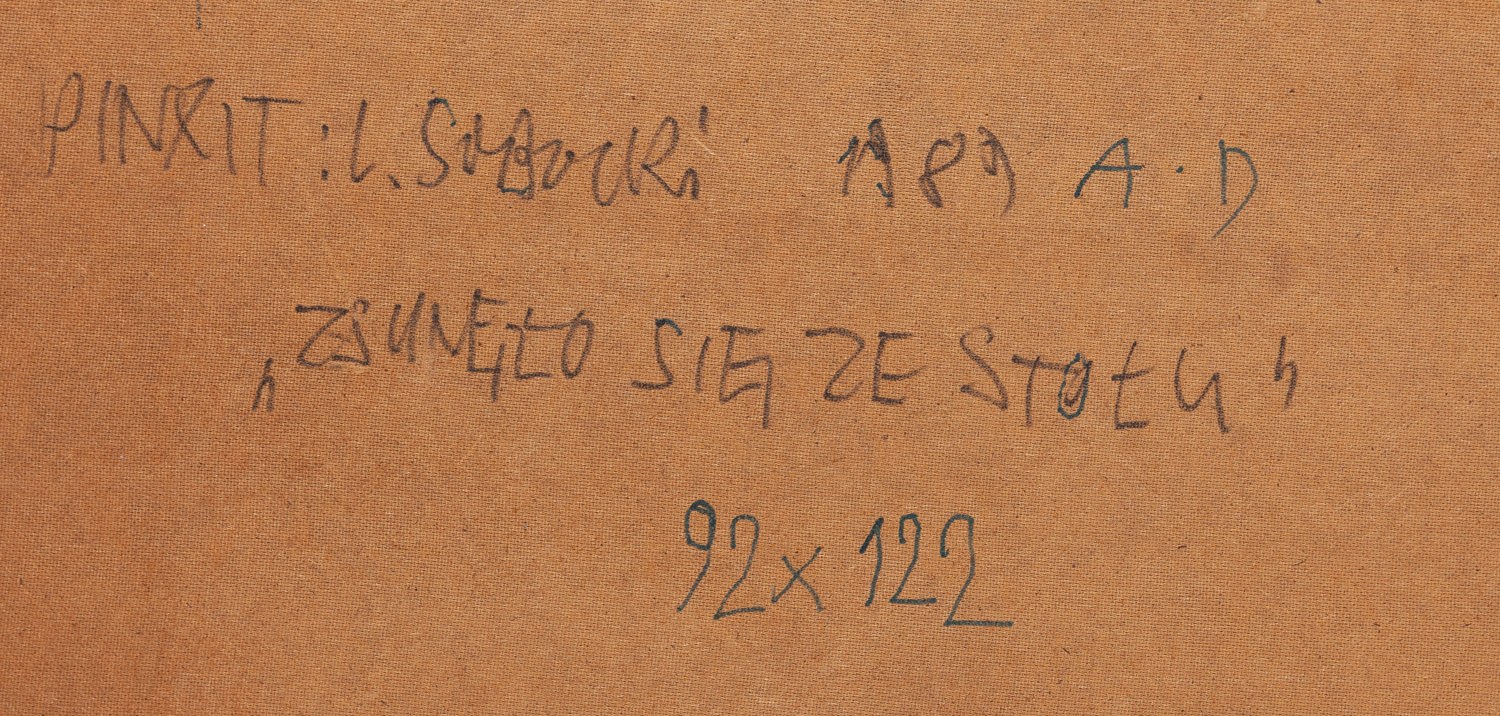 PINXIT : L. SOBOCKI 1989 A·D
„ZSUNĘŁO SIĘ ZE STOŁU"
92x122